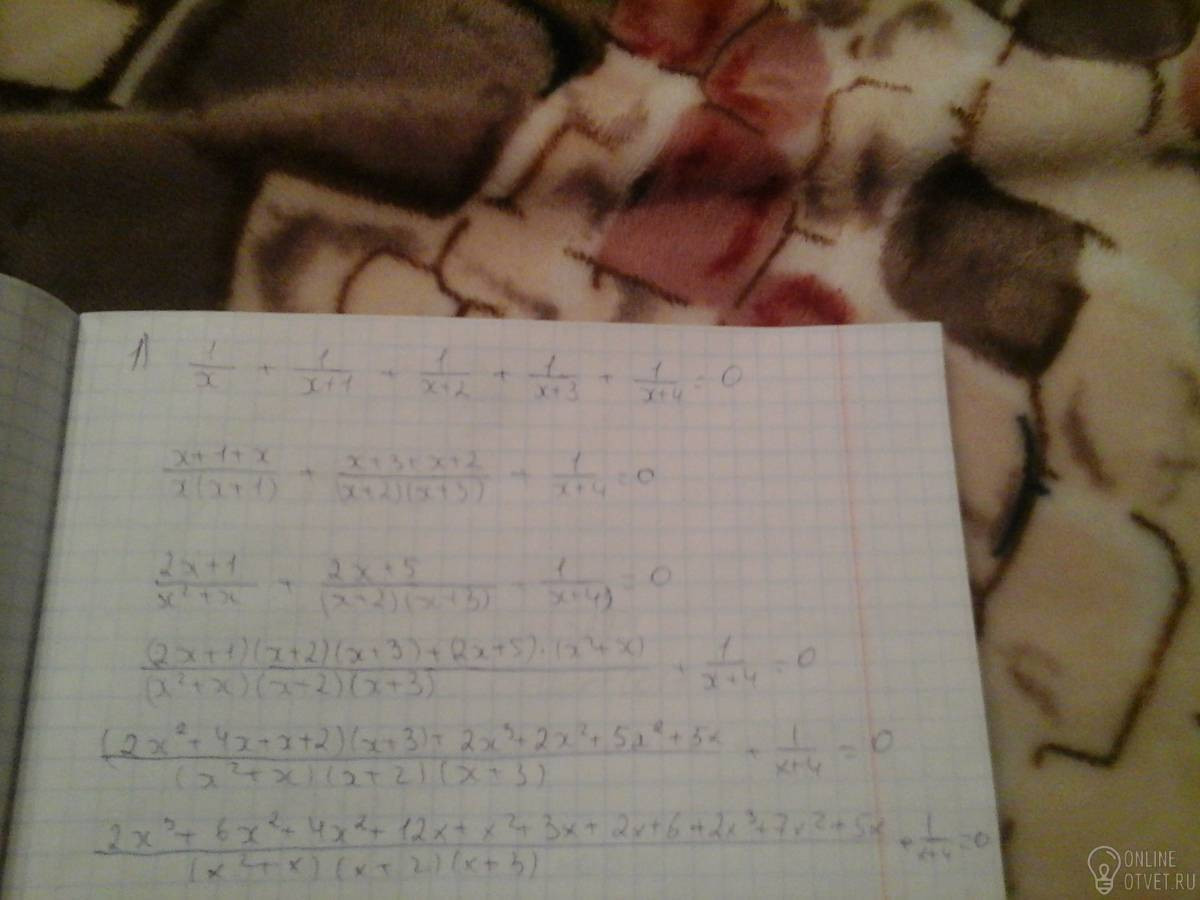 1) 1/x + 1/(x+1) + 1/(x+2) + 1/(x+3) + 1/(x+4) = 0
(x+1+x)/(x(x+1)) + (x+3+x+2)/((x+2)(x+3)) + 1/(x+4) = 0
(2x+1)/(x²+x) + (2x+5)/((x+2)(x+3)) - 1/(x+4) = 0
((2x+1)(x+2)(x+3)+(2x+5)·(x²+x))/((x²+x)(x+2)(x+3)) + 1/(x+4) = 0
((2x²+4x+x+2)(x+3)+2x³+2x²+5x²+5x)/((x²+x)(x+2)(x+3)) + 1/(x+4) = 0
(2x³+6x²+4x²+12x+x²+3x+2x+6+2x³+7x²+5x)/((x²+x)(x+2)(x+3)) + 1/(x+4) = 0
ONLINE
OTVET.RU